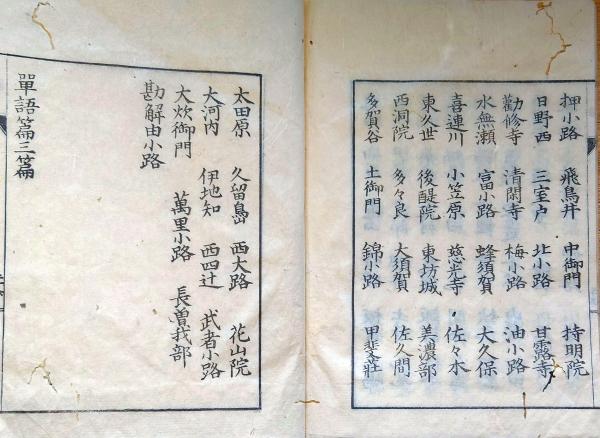 押小路 飛鳥井 中御門 持明院
日野西 三室户 北小路 甘露寺
勸修寺 清閑寺 梅小路 油小路
水無瀬 富小路 蜂須賀 大久保
喜連川 小笠原 慈光寺 佐々木
東久世 後醍院 東坊城 美濃部
西洞院 多々良 大須賀 佐久間
多賀谷 土御門 錦小路 甲斐莊
太田原 久留島 西大路 花山院
大河内 伊地知 西四辻 武者小路
大炊御門 萬里小路 長曽我部
勘解由小路
單語篇三篇